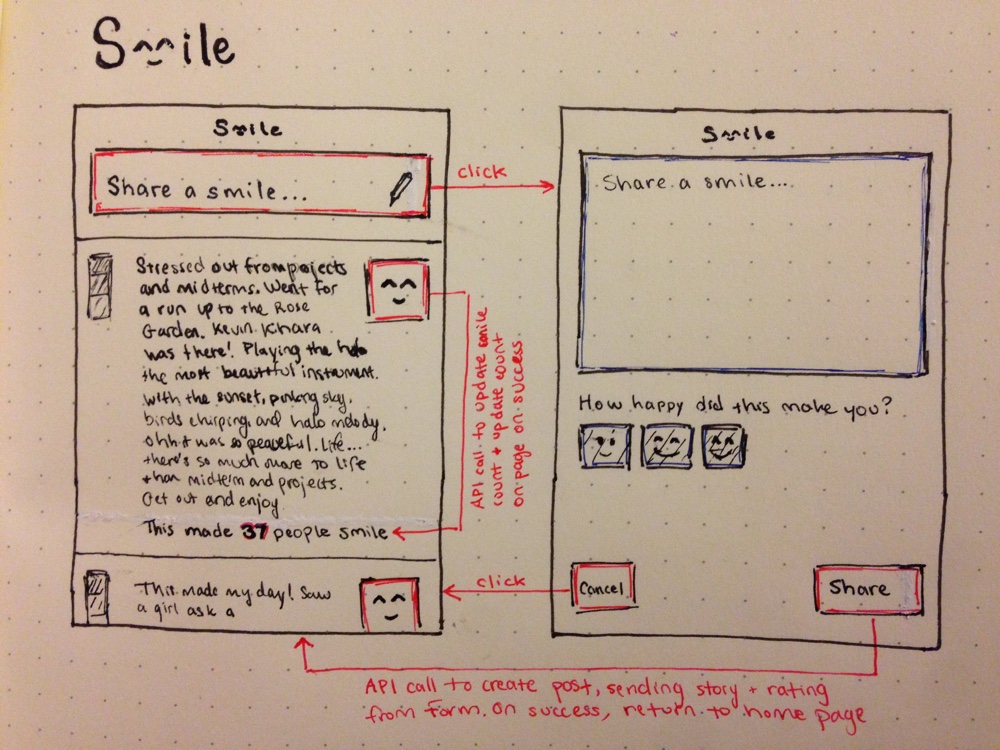 Smile
Smile
Share a smile...
Stressed out from projects
and midterms. Went for
a run up to the Rose
Garden. Kevin Khara
was there! Playing the halo
the most beautiful instrument.
with the sunset, pinking sky,
birds chirping, and halo melody,
ohh it was so peaceful. Life...
there's so much more to life
than midterm and projects.
Get out and enjoy
This made 37 people smile
This made my day! Saw
a girl ask a
click
API call to update smile
count + update count
on page on success
click
Smile
Share a smile...
How happy did this make you?
Cancel
Share
API call to create post, sending story + rating
from form. On success, return to home page